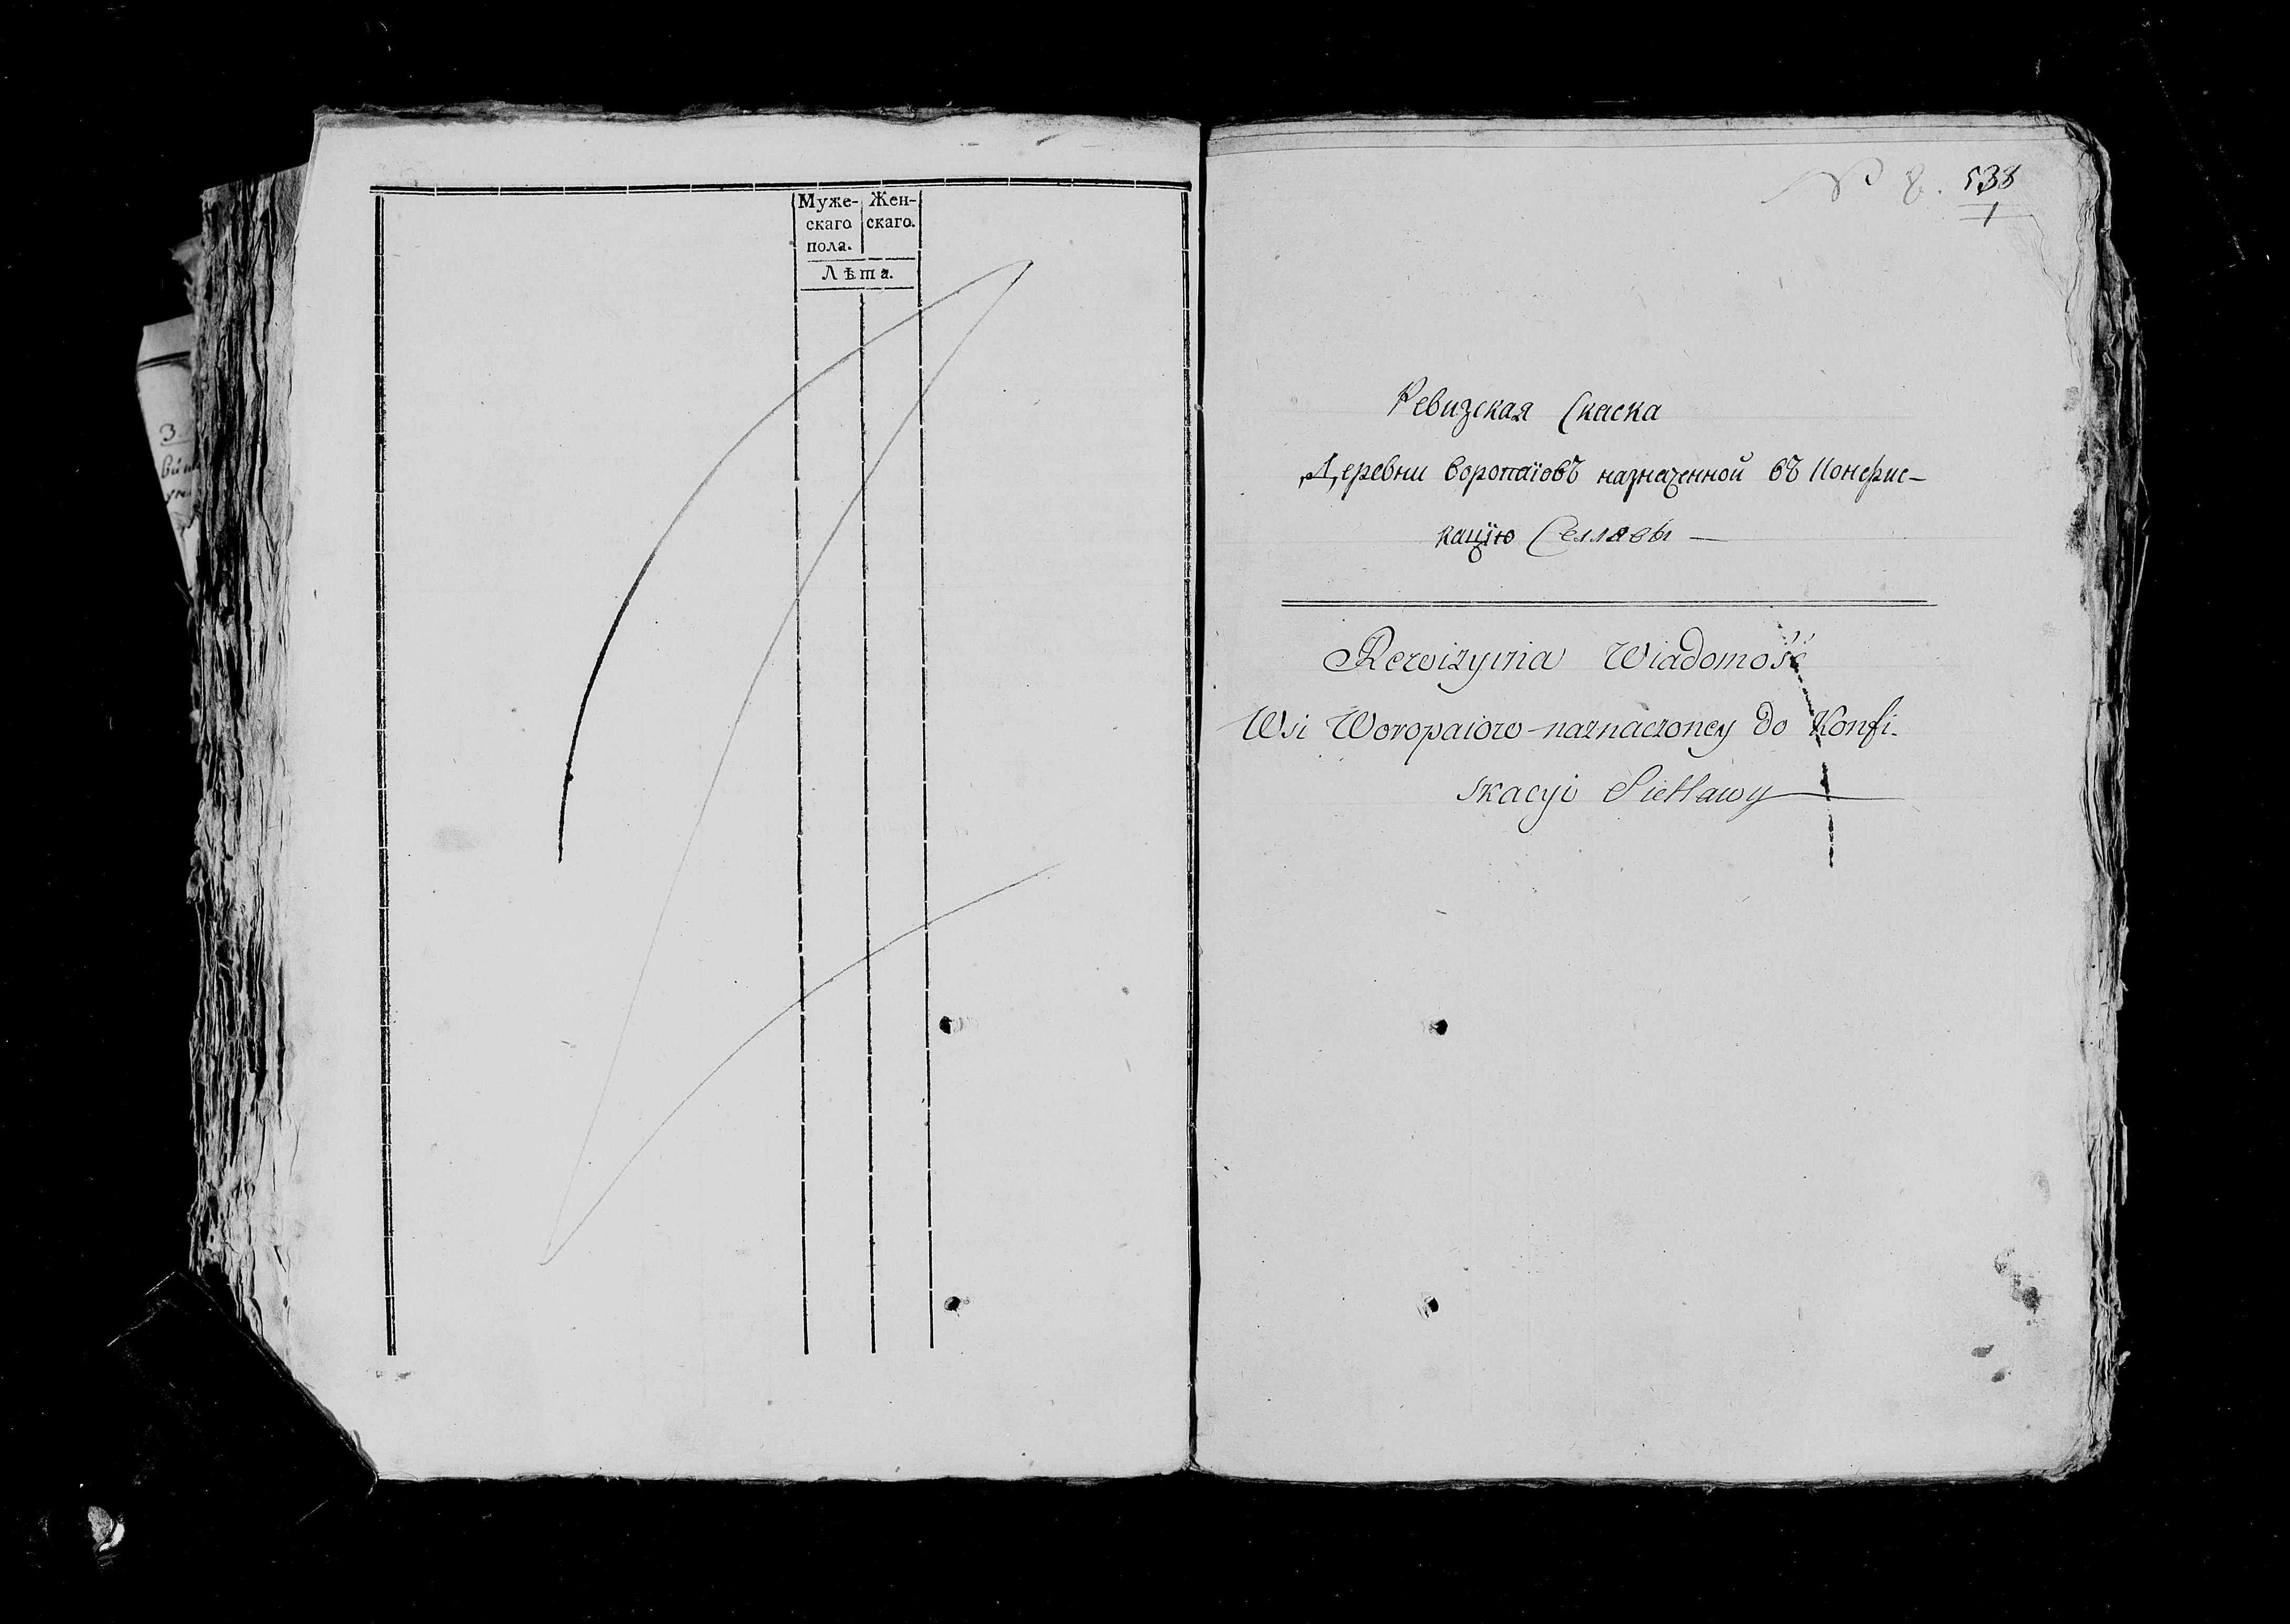 Муже-
скаго
пола.
Жен-
скаго.
Лѣта.
3
№ 8. 538
1
Ревизская Скаска
Деревни воропаіовъ назначенной въ Конфис-
кацїю Селлявы —
Rewizyina Wiadomość
Wsi Woropaiow naznaczoney do Konfi-
skacyi Siellawy